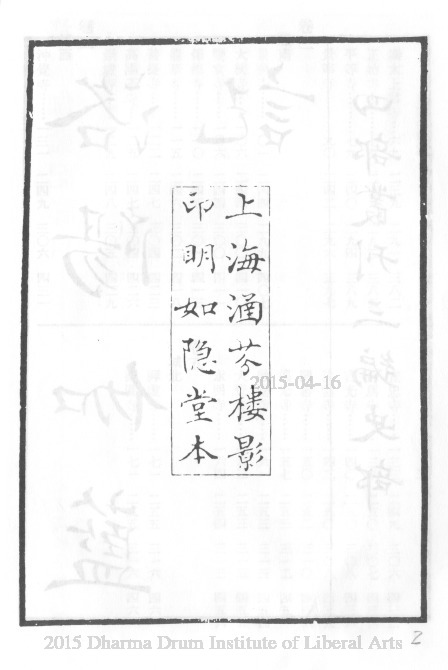 上海涵芬樓影
印明如隐堂本
2015-04-16
2015 Dharma Drum Institute of Liberal Arts
2